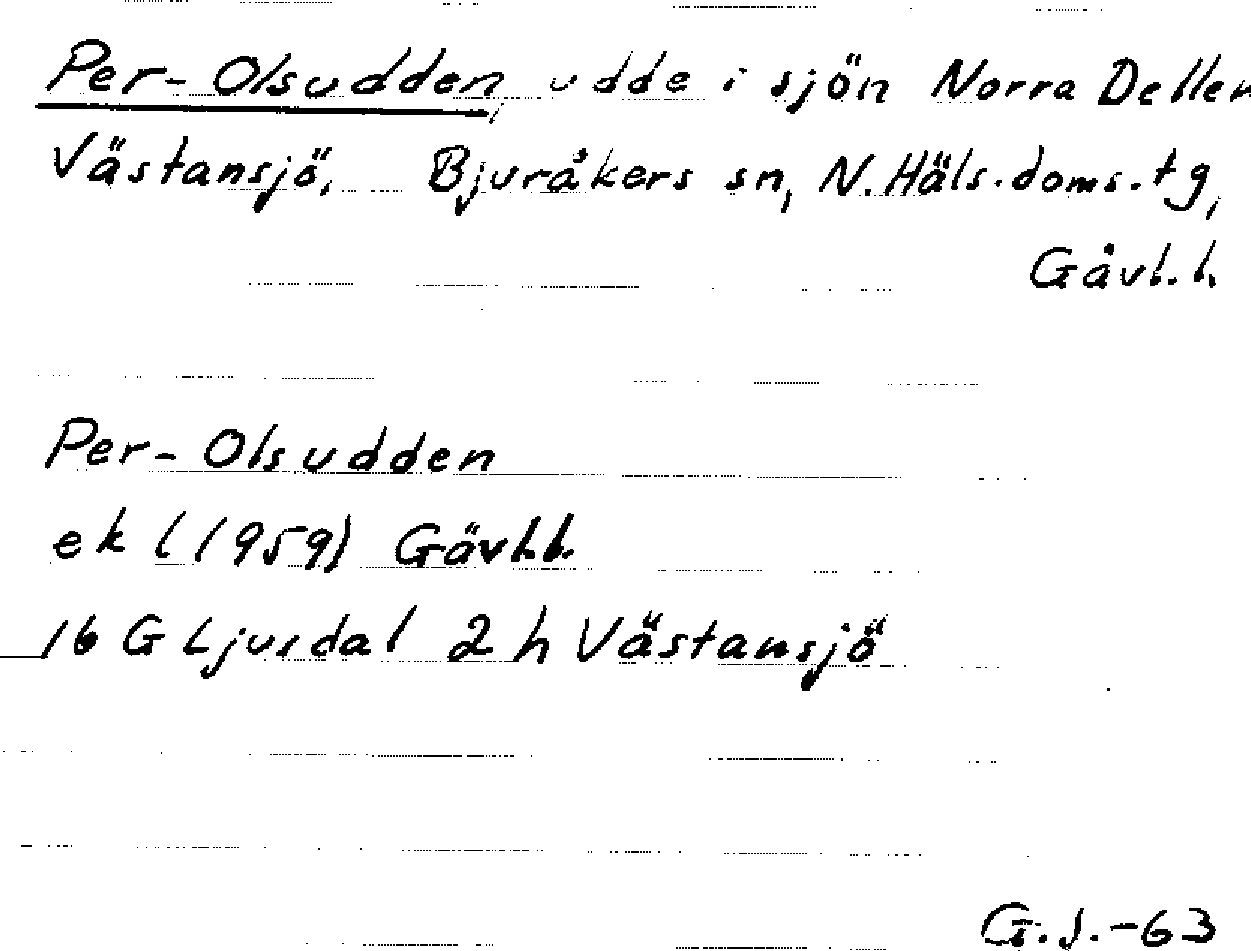 Per-Olsudden, udde i sjön Norra Dellen
Västansjö, Bjuråkers sn, N. Häls. doms. tg,
Gävl. l.
Per-Olsudden
ek (1959) Gävl.l.
16 G Ljusdal 2 h Västansjö
G.J.-63